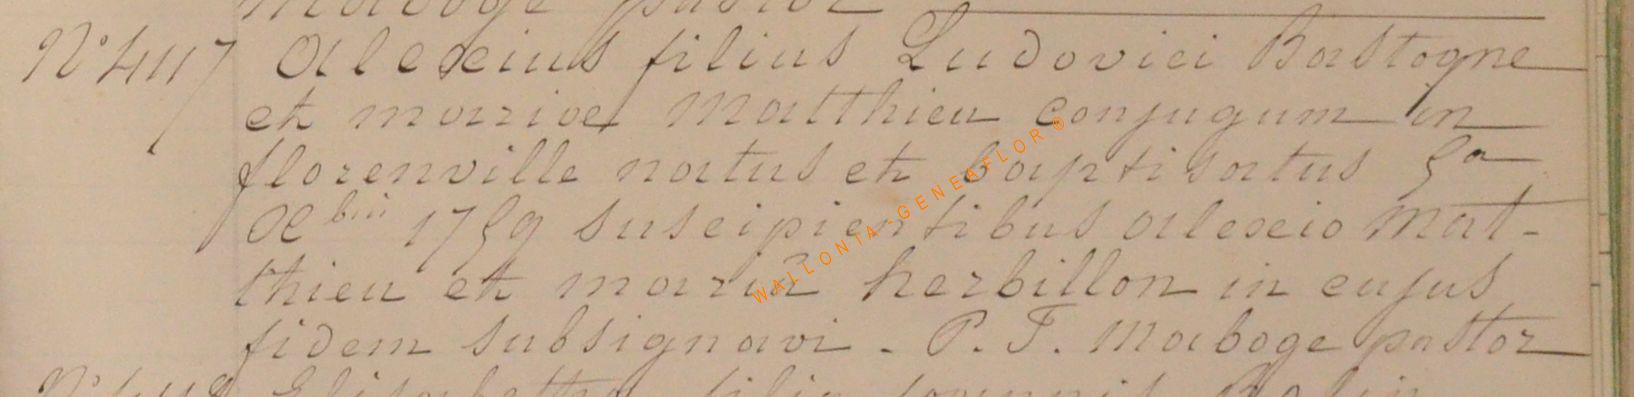 maboge pastor
N° 4117 Alexius filius Ludovici Bastogne
et mariae Matthieu conjugum in
florenville natus et baptisatus 5a
Xbris 1759 suscipientibus alexio Mat-
thieu et maria herbillon in cujus
fidem subsignavi. P. J. Maboge pastor
Elisabetha filia joannis
WALLONIA-GENEAFLOR ©